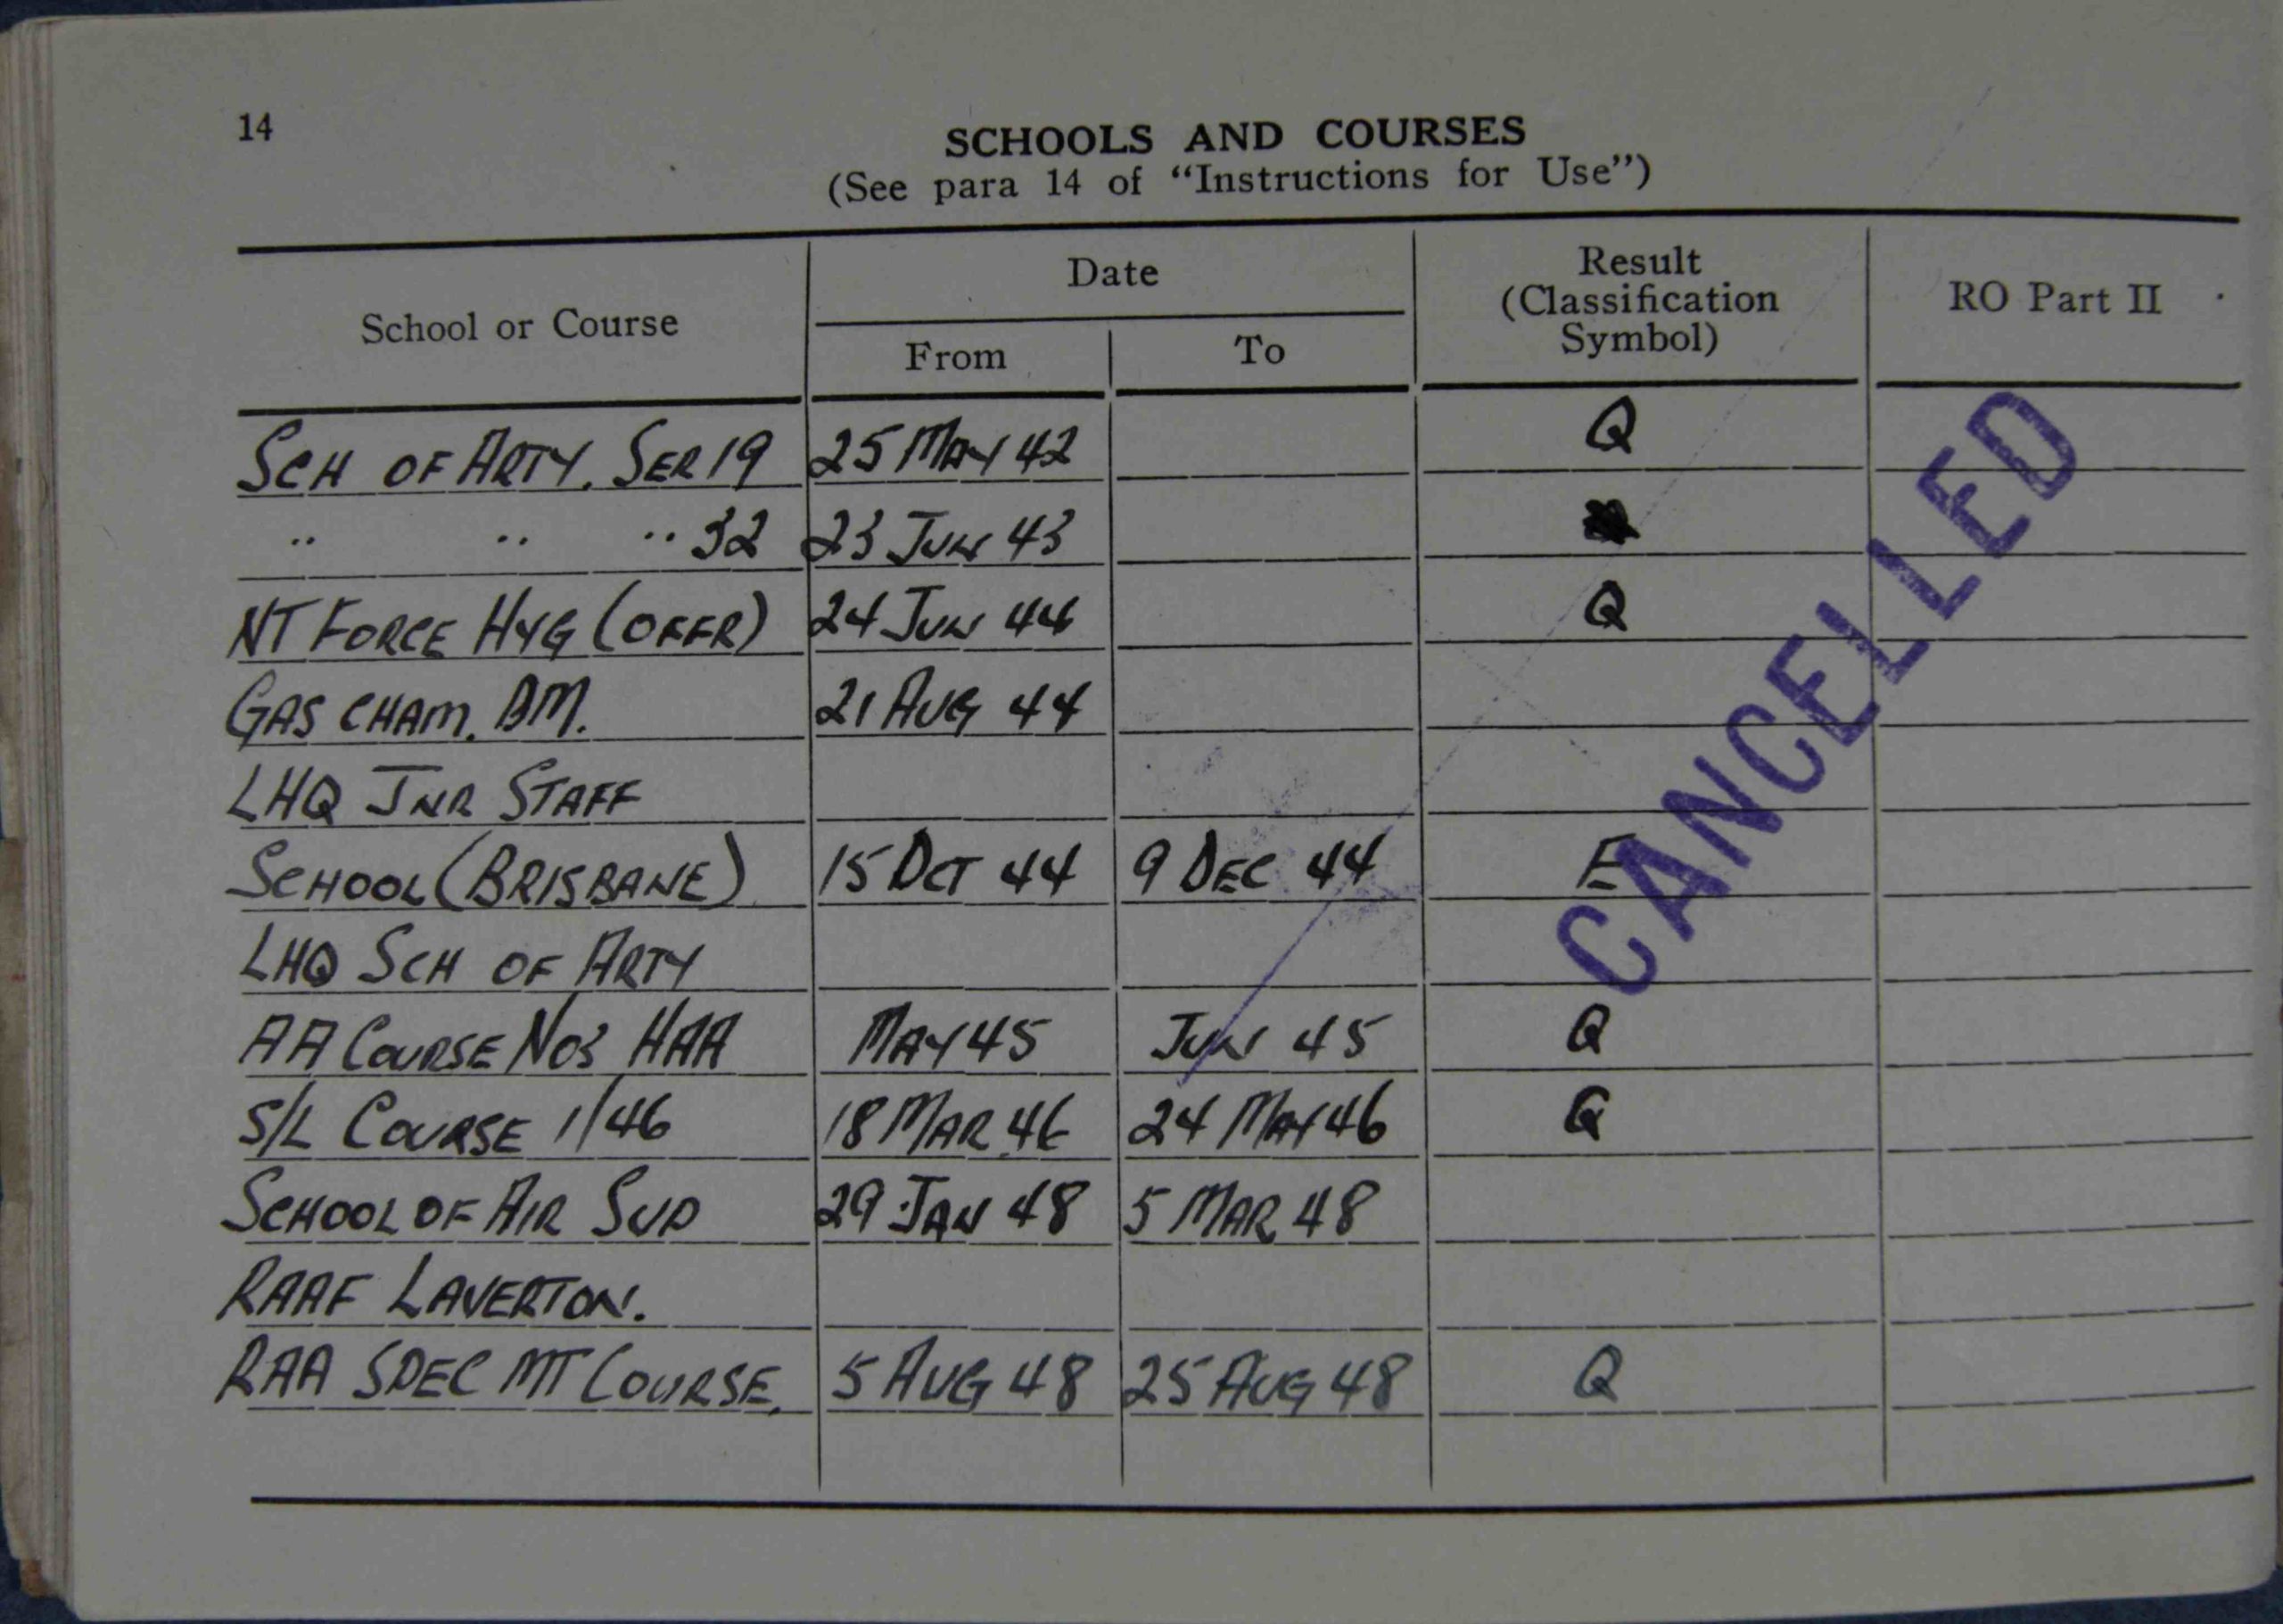 14
SCHOOLS AND COURSES
(See para 14 of “Instructions for Use”)
School or Course
Date
From
To
Result
(Classification
Symbol)
RO Part II
SCH OF ARTY. SER 19 25 MAY 42 Q
" " " 32 23 JUN 43
NT FORCE HYG (OFFR) 24 JUN 44 Q
GAS CHAM. DM. 21 AUG 44
LHQ JNR STAFF
SCHOOL (BRISBANE) 15 OCT 44 9 DEC 44 E
LHQ SCH OF ARTY
AA COURSE NO3 HAA MAY 45 JUN 45 Q
S/L COURSE 1/46 18 MAR 46 24 MAY 46 Q
SCHOOL OF AIR SUP 29 JAN 48 5 MAR 48
RAAF LAVERTON.
RAA SPEC MT COURSE. 5 AUG 48 25 AUG 48 Q
CANCELLED